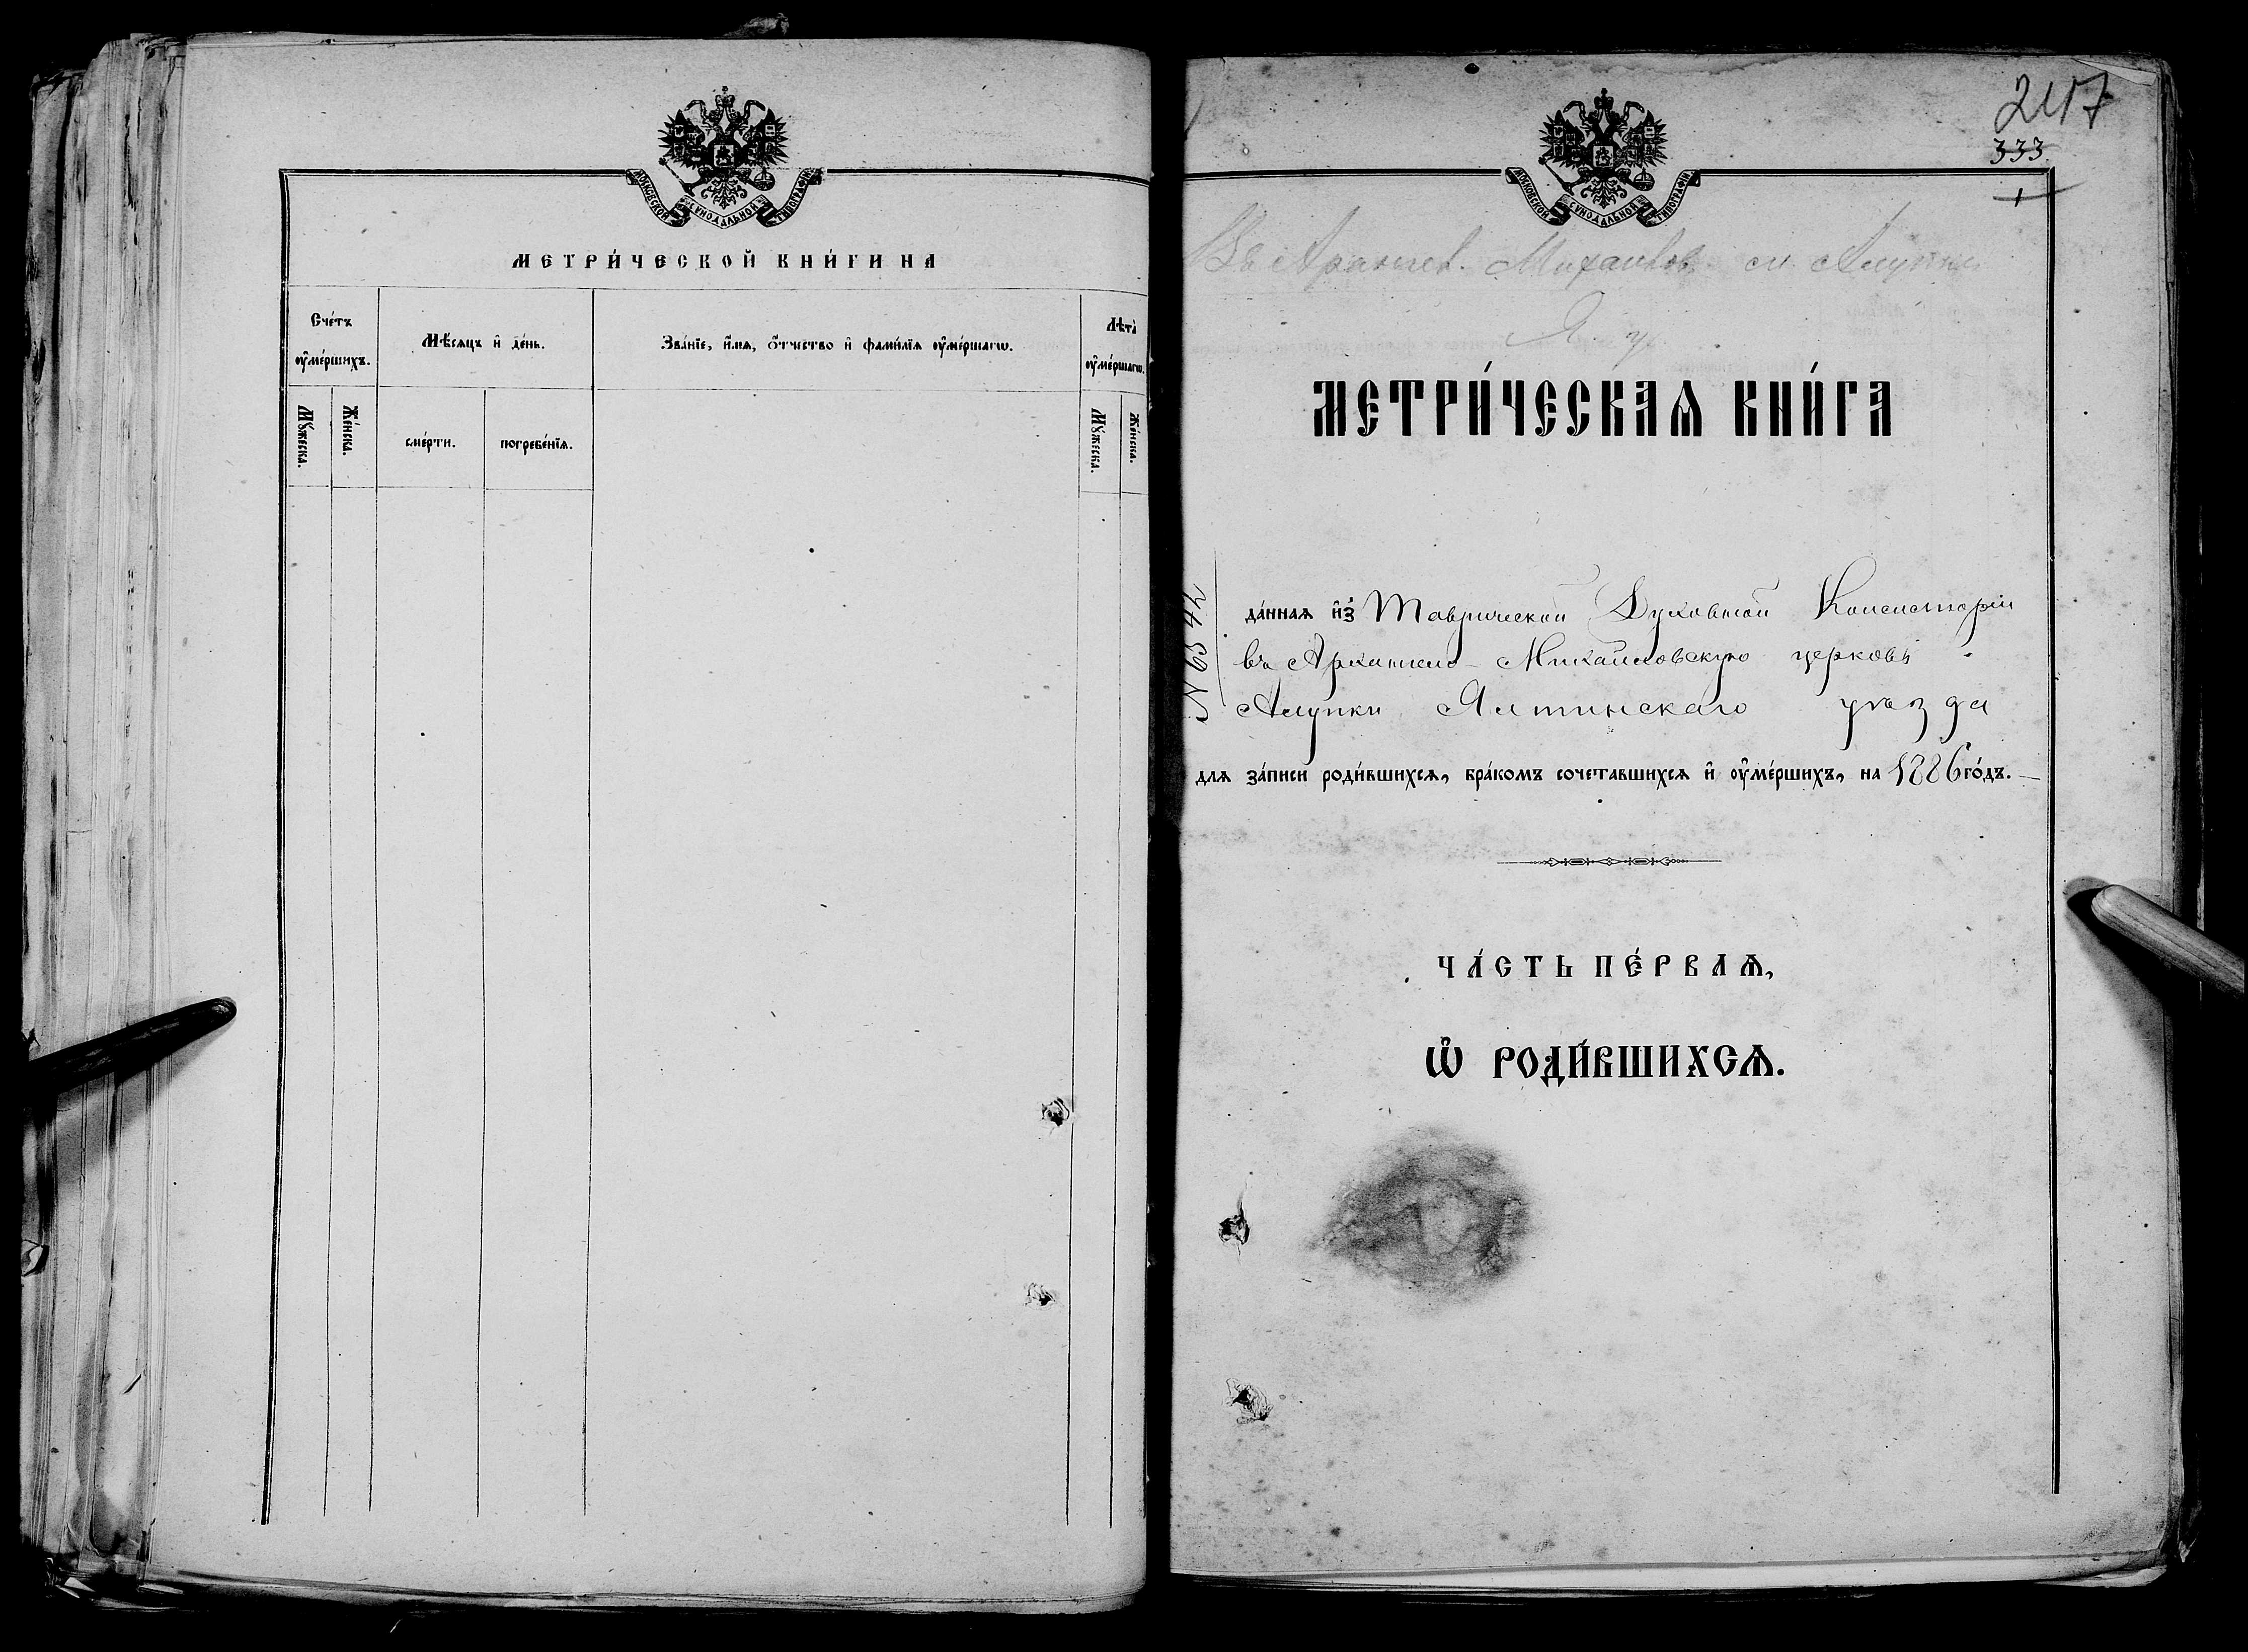 МОСКОВСКОЙ СѴНОДАЛЬНОЙ ТИПОГРАФІИ
МЕТРИ́ЧЕСКОЙ КНИ́ГИ НА
Сче́тъ ᲂу҆ме́ршихъ.
Мѣ́сяцъ и҆ де́нь.
Зва́нїе, и҆́мѧ, ѻ҆́тчество и҆ фами́лїѧ ᲂу҆ме́ршагѡ.
Лѣта̀ ᲂу҆ме́ршагѡ.
Мꙋ́жеска.
Же́нска.
сме́рти.
погребе́нїѧ.
Мꙋ́жеска.
Же́нска.
247
333
1
МОСКОВСКОЙ СѴНОДАЛЬНОЙ ТИПОГРАФІИ
Въ Архангел. Михаилов. Алупки
МЕТРИ́ЧЕСКАѦ КНИ́ГА
№ 6342
да́ннаѧ и҆з̾ Таврической Духовной Консисторіи
въ Архангело-Михайловскую церковь
Алупки Ялтинскаго уѣзда
длѧ за́писи роди́вшихсѧ, бра́комъ сочетавшихсѧ и҆ ᲂу҆ме́ршихъ, на 1886 го́дъ.
ЧА́СТЬ ПЕ́РВАѦ,
Ѡ҆ РОДИ́ВШИХСѦ.